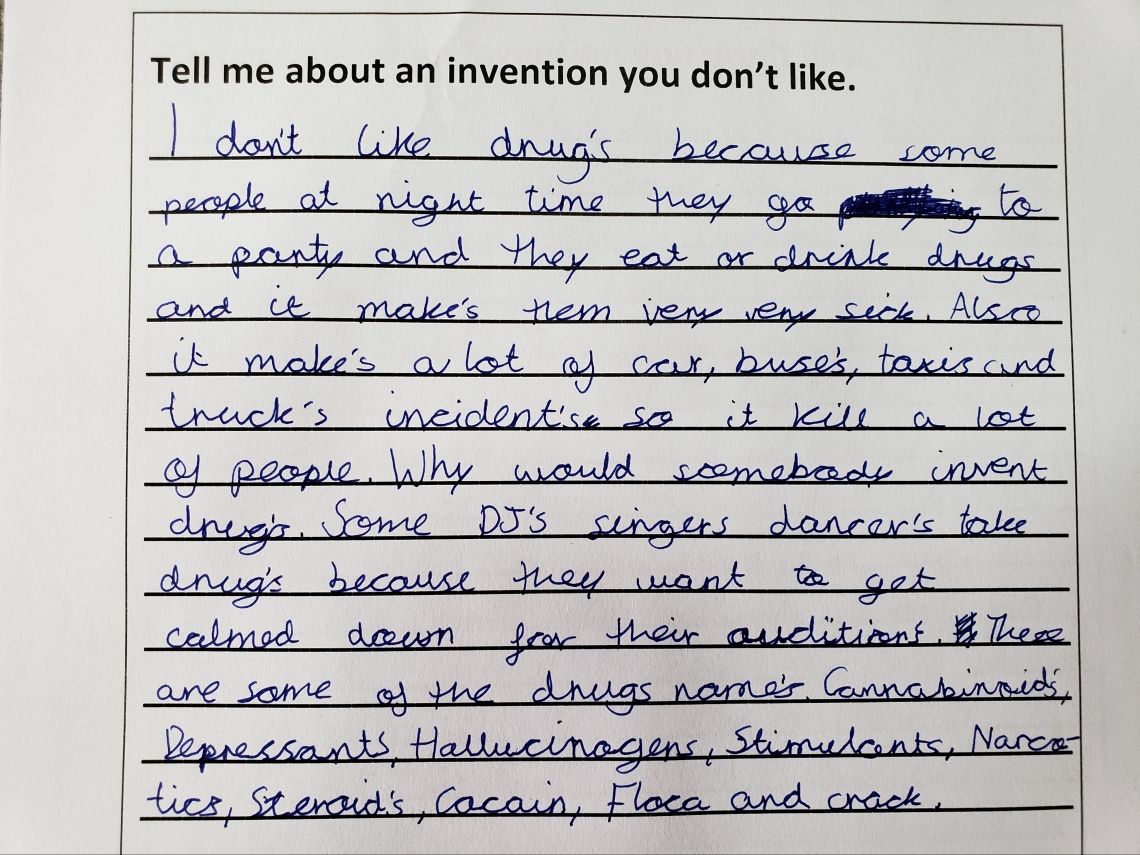 Tell me about an invention you don't like.
I don't like drug's because some
people at night time they go to
a party and they eat or drink drugs
and it make's them very very sick. Also
it make's a lot of car, buse's, taxis and
truck's incident's so it kill a lot
of people. Why would somebody invent
drug's. Some DJ's singers dancer's take
drug's because they want to get
calmed down for their auditions. These
are some of the drugs name's. Cannabinoid's,
Depressants, Hallucinogens, Stimulants, Narco-
tics, Steroid's, Cocain, Floca and crack.